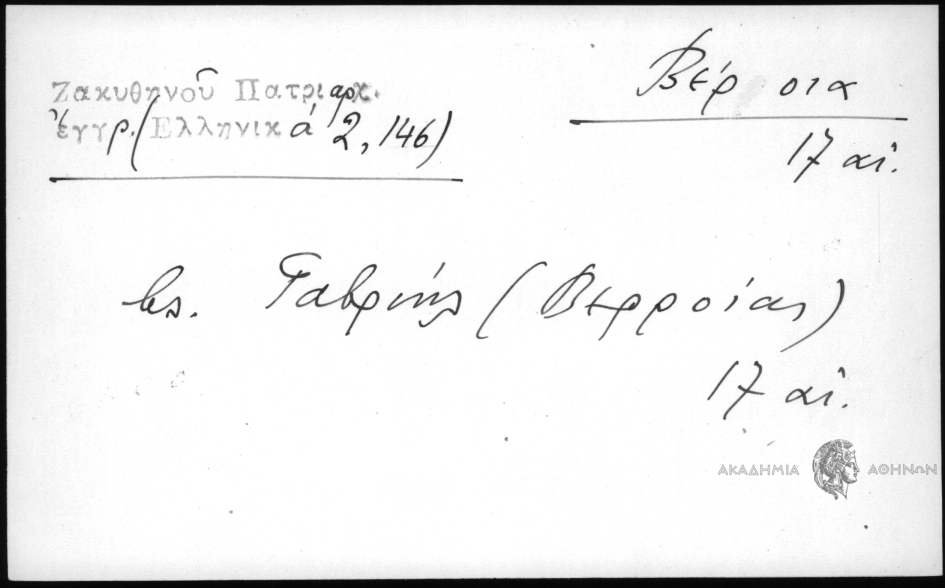 Ζακυθηνοῦ Πατριαρχ.
ἔγγρ. (Ἑλληνικά 2, 146)
Βέρ οια
17 αἰ.
βλ. (Βερροίας)
17 αἰ.
ΑΚΑΔΗΜΙΑ ΑΘΗΝΩΝ